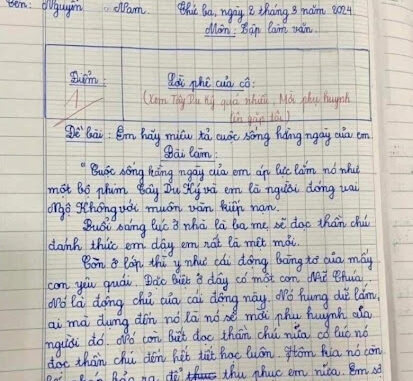 Tên: Nguyễn Nam. Thứ ba, ngày 2 tháng 3 năm 2024
Môn: Tập làm văn.
Điểm: Lời phê của cô:
1 (Xem Tây Du Ký quá nhiều, Mời phụ huynh
lên gặp tôi)
Đề bài: Em hãy miêu tả cuộc sống hằng ngày của em
Bài làm:
"Cuộc sống hằng ngày của em áp lực lắm nó như
một bộ phim Tây Du Ký và em là người đóng vai
Ngộ Không với muôn vàn kiếp nạn.
Buổi sáng lúc ở nhà là ba mẹ, sẽ đọc thần chú
đánh thức em dậy em rất là mệt mỏi.
Còn ở lớp thì y như cái động băng tơ của mấy
con yêu quái. Đặc biệt ở đây có một con Nữ Chúa
Nó là động chủ của cái động này. Nó hung dữ lắm,
ai mà đụng đến nó là nó sẽ mời phụ huynh của
người đó. Nó còn biết đọc thần chú nữa có lúc nó
đọc thần chú đến hết tiết học luôn. Hôm kia nó còn
bảo ra để thu phục em nữa. Em sợ